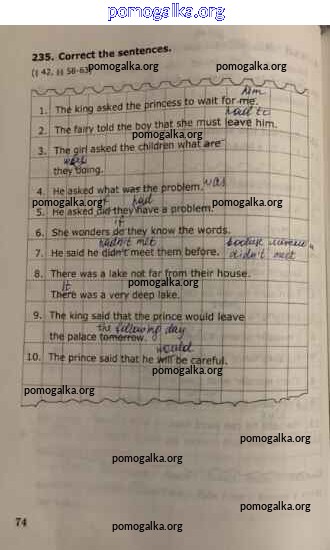 pomogalka.org
235. Correct the sentences.
(§ 42, §§ 58-63)
pomogalka.org pomogalka.org
him
1. The king asked the princess to wait for me.
had to
2. The fairy told the boy that she must leave him.
pomogalka.org
3. The girl asked the children what are
were
they doing.
pomogalka.org
4. He asked what was the problem. was
pomogalka.org pomogalka.org
if had
5. He asked did they have a problem.
if
6. She wonders do they know the words.
hadn't met
7. He said he didn't meet them before.
didn't meet
8. There was a lake not far from their house.
pomogalka.org
It
There was a very deep lake.
9. The king said that the prince would leave
the following day
the palace tomorrow.
pomogalka.org
would
10. The prince said that he will be careful.
pomogalka.org
pomogalka.org
pomogalka.org
pomogalka.org
pomogalka.org
74
pomogalka.org